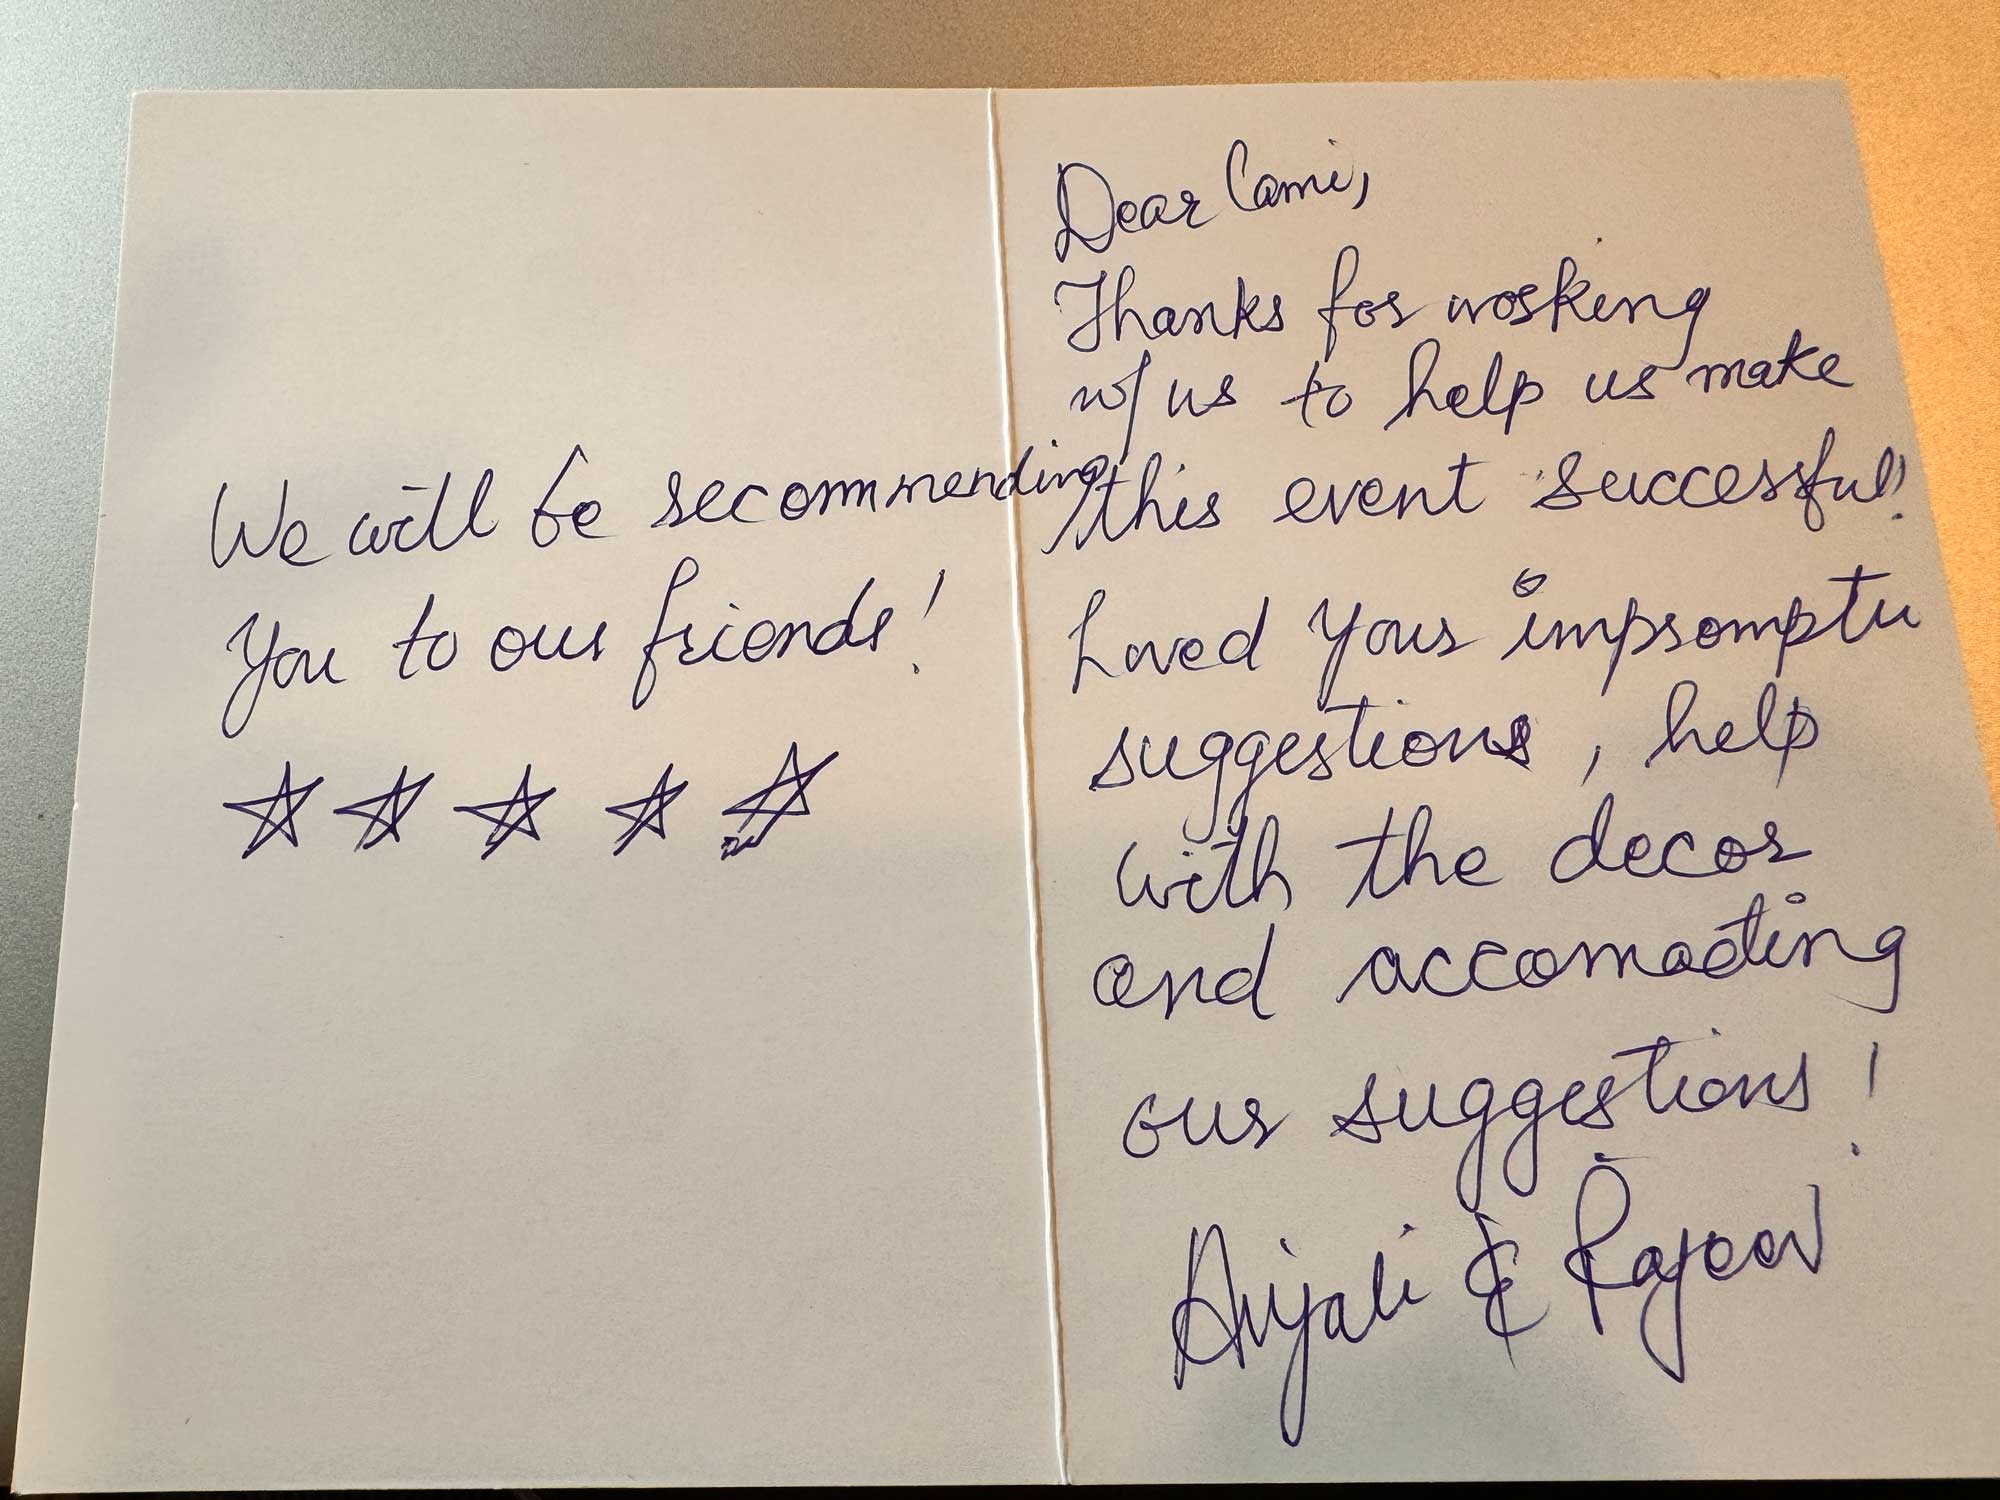 Dear Cami,
Thanks for working
w/ us to help us make
this event successful!
Loved your impromptu
suggestions, help
with the decor
and accomodting
our suggestions!
Anjali & Rajeev
We will be recommending
you to our friends!